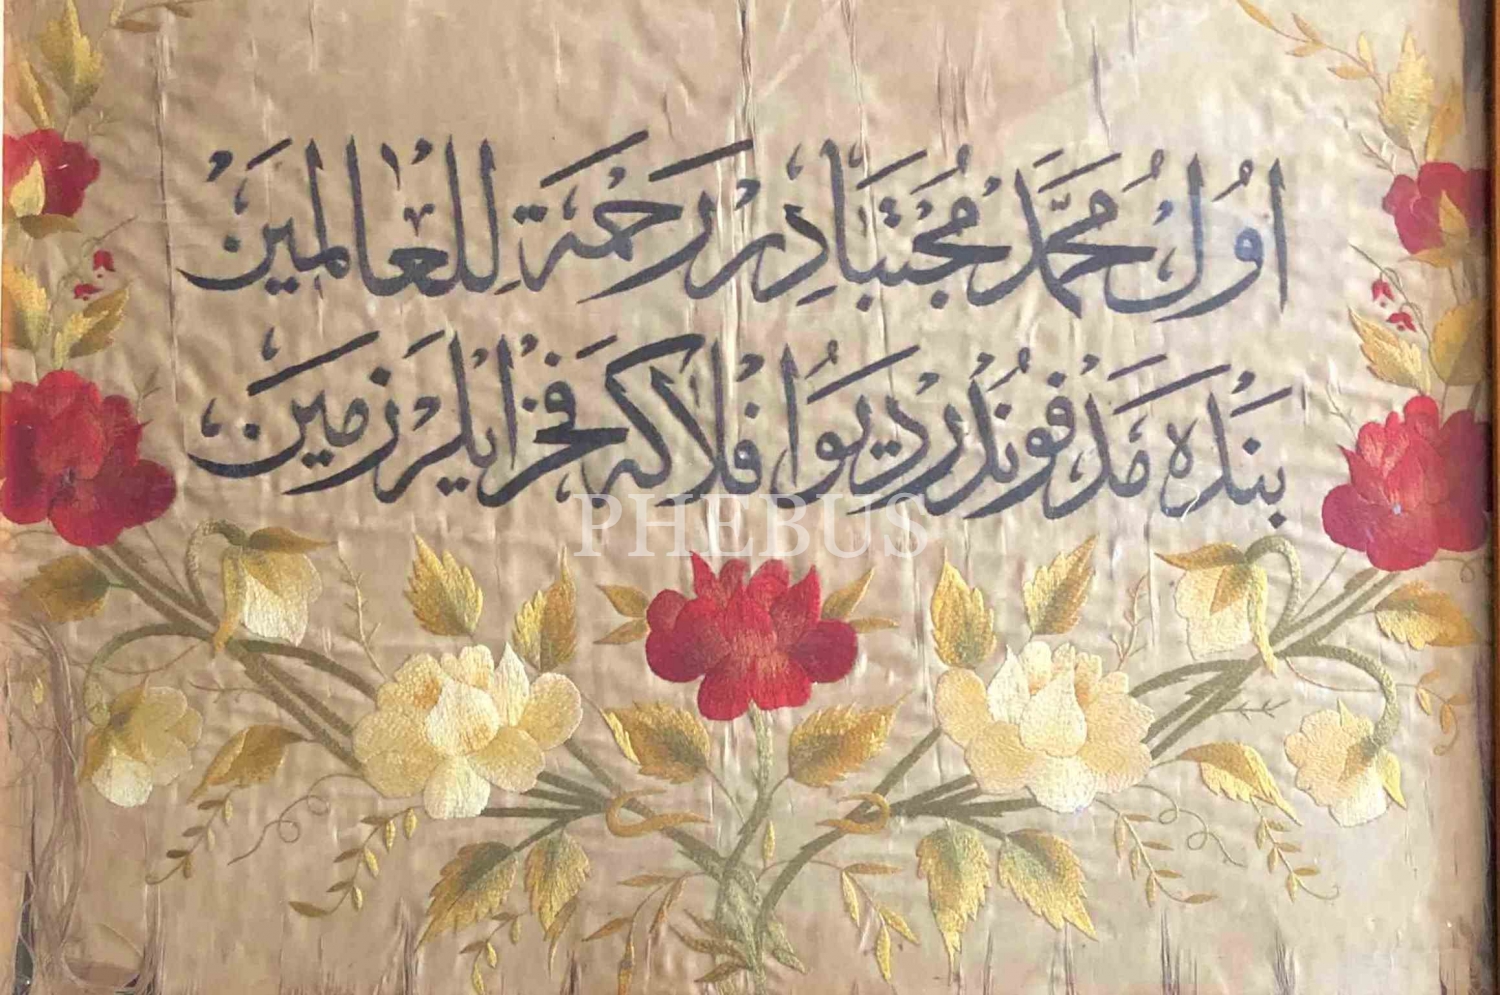 اوُلُ مُحَمَّد مُجْتَبَادِرْ رَحْمَةِ لِلْعَالَمِينَ
بَنْدَه مَدْفُونْدُرْ دِيُو اَفْلَاكَه فَخْرْ اَيْلَرْ زَمِينَ
PHEBUS